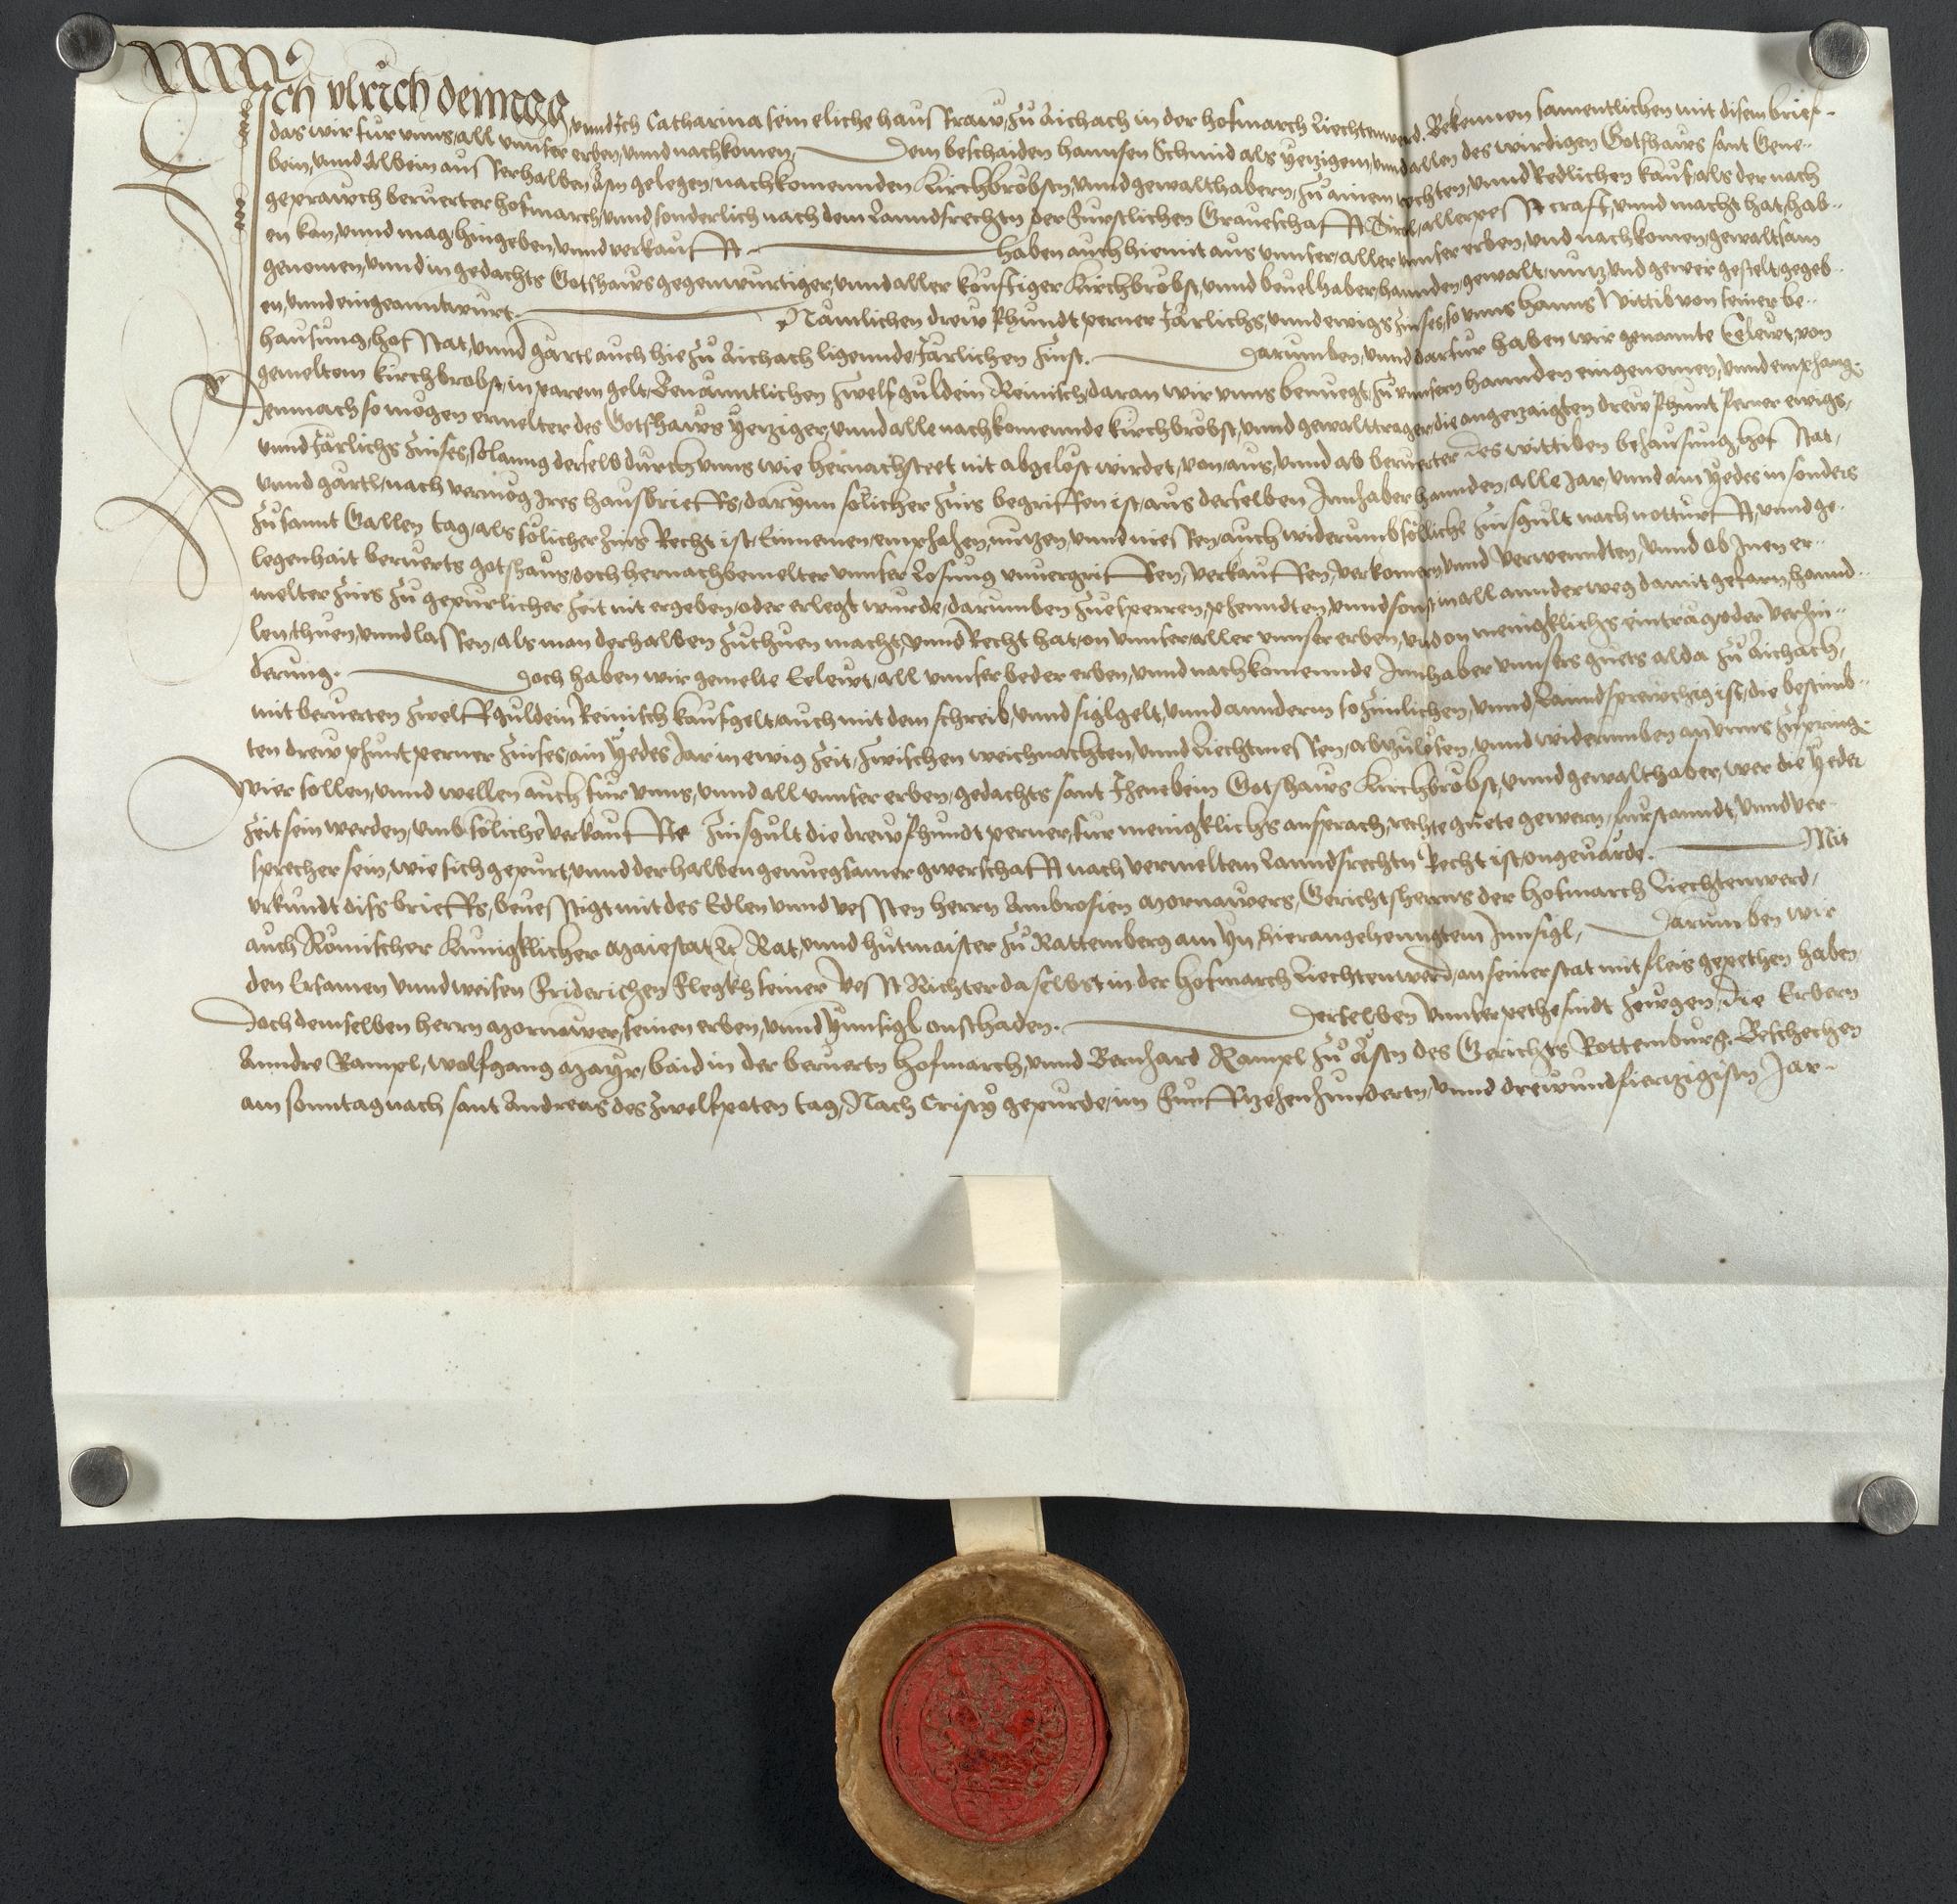 Ich Ulrich Dennegg, vnnd Ich Catharina sein eliche hausfraw, zů Aichach in der hofmarch Liechtenwerd. Bekennen samentlichen mit disem brief-
das wir fur vnns, all vnnser erben, vnnd nachkomen, Dem beschaiden Hannsen Schmid als yetzigem, vnnd allen des wirdigen Gotshaws sant Gene-
bein, vnnd Albein ausserhalben Åsn gelegen, nachkomennden Kirchbröbsten, vnnd gewalthabern, zů ainen rechten, vnnd Redlichen kauf, als der nach
geprawch beruerter hofmarch, vnnd sonderlich nach dem Lanndsrechtn der Furstlichen Graueschafft Tirol, allerpesst craft, vnnd macht hat, hab-
en kan, vnnd mag, hingeben, vnnd verkaufft. haben auch hiemit aus vnnser, aller vnnser erben, vnd nachkomen, gewaltsam
genomen, vnnd in gedachts Gotshaws gegenwurtiger, vnnd aller konftiger Kirchbröbst, vnnd beuelhaber, hannden, gewalt, nutz vnd gewer gestelt, gegeb-
en, vnnd eingeanntwurt. Nämlichen drew Phundt perner Järlichs, vnnd ewigs zinses, so vnns hanns Wittib von seiner be-
hausung, hofstat, vnnd gärtl auch hie zů Aichach ligennde, Järlichen zinst. Darumben, vnnd darfur haben wir genannte Eelewt, von
gemeltem kirchbrobst, in parem gelt, Benånntlichen zwelf guldein Reinisch, daran wir vnns benuegt, zů vnnsern hannden eingenomen, vnnd emphang-
Demnach so mögen ermelter des Gotshaws yetziger, vnnd alle nachkomennde kirchbröbst, vnnd gewalttrager, die angezaigten drew Phunt Perner ewigs,
vnnd Järlichs zinses, solanng derselb durch vnns wie hernachsteet nit abgelöst wirdet, von aus, vnnd ab beruerter des wittiben behausung, hofstat,
vnnd gärtl, nach vermög Ires hausbrieffs, darynn sölicher zins begriffen ist, aus derselben Innhaber hannden, alle Jar, vnnd ain yedes in sonders
zů sannt Gallen tag, als sölicher zins Recht ist, Einnemen, emphahen, nutzen, vnnd niessen, auch widerumb sölliche zinsgult nach notturfft, vnnd ge-
legenhait beruerts gotshaus, doch hernachbemelter vnnser Losung vnuergriffen, verkauffen, verkomern vnnd verwenndten, vnnd ob Jnen er-
melter zins zů gepurlicher zeit nit ergeben, oder erlegt wurde, darumben zuesperren, phenndten, vnnd sonst in all annder weg damit gefarn, hannd-
len, thuen, vnnd lassen, als man derhalben zuthuen macht, vnnd Recht hat, on vnnser, aller vnnser erben, vnd on menigklichs eintrag oder verhin-
derung. Doch haben wir gemelte Eelewt, all vnnser beder erben, vnnd nachkomennde Innhaber vnnsers guets alda zů Aichach,
mit beruerten zwelff guldein Reinisch kaufgelt, auch mit dem schreib, vnnd siglgelt, vnnd annderm so zimlichen, vnnd Lanndsprewchig ist, die bestimb-
ten drew phunt perner zinses, ain yedes Jar in ewig zeit, zwischen weichnachten, vnnd Liechtmessen, abzulösen, vnnd widerumben an vnns zupring-
Wier sollen, vnnd wellen auch fur vnns, vnnd all vnnser erben, gedachts sant Jhenebein Gotshaws Kirchbröbst, vnnd gewalthaber, wer die yeder
zeit sein werden, vmb söliche verkauffte zinsgult die drew Phundt perner, fur menigklichs ansprach, rechte guete gewern, furstanndt, vnnd ver-
sprecher sein, wie sich gepurt, vnnd derhalben genuegsamer gwerschafft nach vermeltem Lanndsrechtn Recht ist, ongeuärde. Mit
vrkundt diss brieffs, beuesstigt mit des Edlen vnnd vessten herrn Ambrosien Mornawers, Gerichtsherrns der hofmarch Liechtenwerd,
auch Römischer Kunigklicher Maiestat etc Rat, vnnd hutmaister zů Rattemberg am Yn, hierangehenngtem Innsigl, Darumben wir
den Ersamen vnnd weisen Friderichen Flegkh seiner Vesst Richter daselbst in der hofmarch Liechtenwerd, an seiner stat mit fleis gepethen haben,
Doch demselben herrn Mornawer, seinen erben, vnnd Ynnsigl onschaden. Derselben vnnser pethe sindt zewgen, die Erbern
Anndre Rampl, Wolfgang Mayr, baid in der beruerten hofmarch, vnnd Bernhard Rampl zů Åstn des Gerichts Rottemburg. Beschechen
am sonntag nach sant Andreas des zwelfpoten tag, Nach Cristy gepurde, im Funfftzehenhundertn, vnnd drewundfiertzigistn Jar.